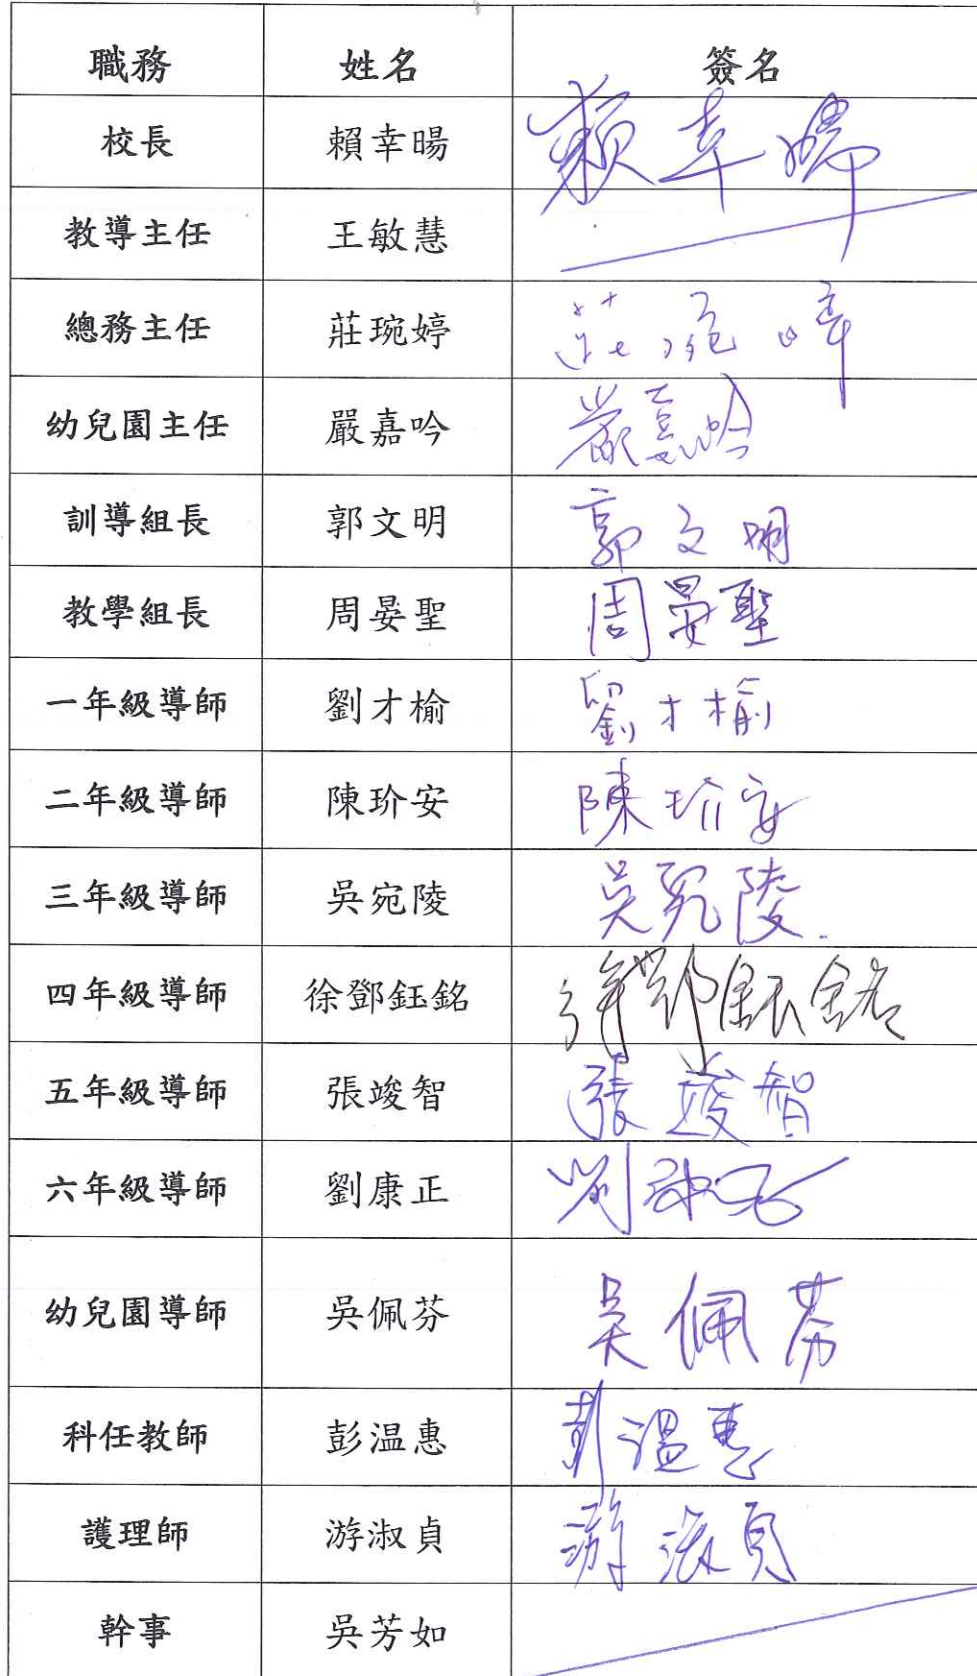 職務 姓名 簽名
校長 賴幸暘 賴幸暘
教導主任 王敏慧
總務主任 莊琬婷 莊琬婷
幼兒園主任 嚴嘉吟 嚴嘉吟
訓導組長 郭文明 郭文明
教學組長 周晏聖 周晏聖
一年級導師 劉才榆 劉才榆
二年級導師 陳玠安 陳玠安
三年級導師 吳宛陵 吳宛陵
四年級導師 徐鄧鈺銘 徐鄧鈺銘
五年級導師 張竣智 張竣智
六年級導師 劉康正 劉康正
幼兒園導師 吳佩芬 吳佩芬
科任教師 彭温惠 彭温惠
護理師 游淑貞 游淑貞
幹事 吳芳如